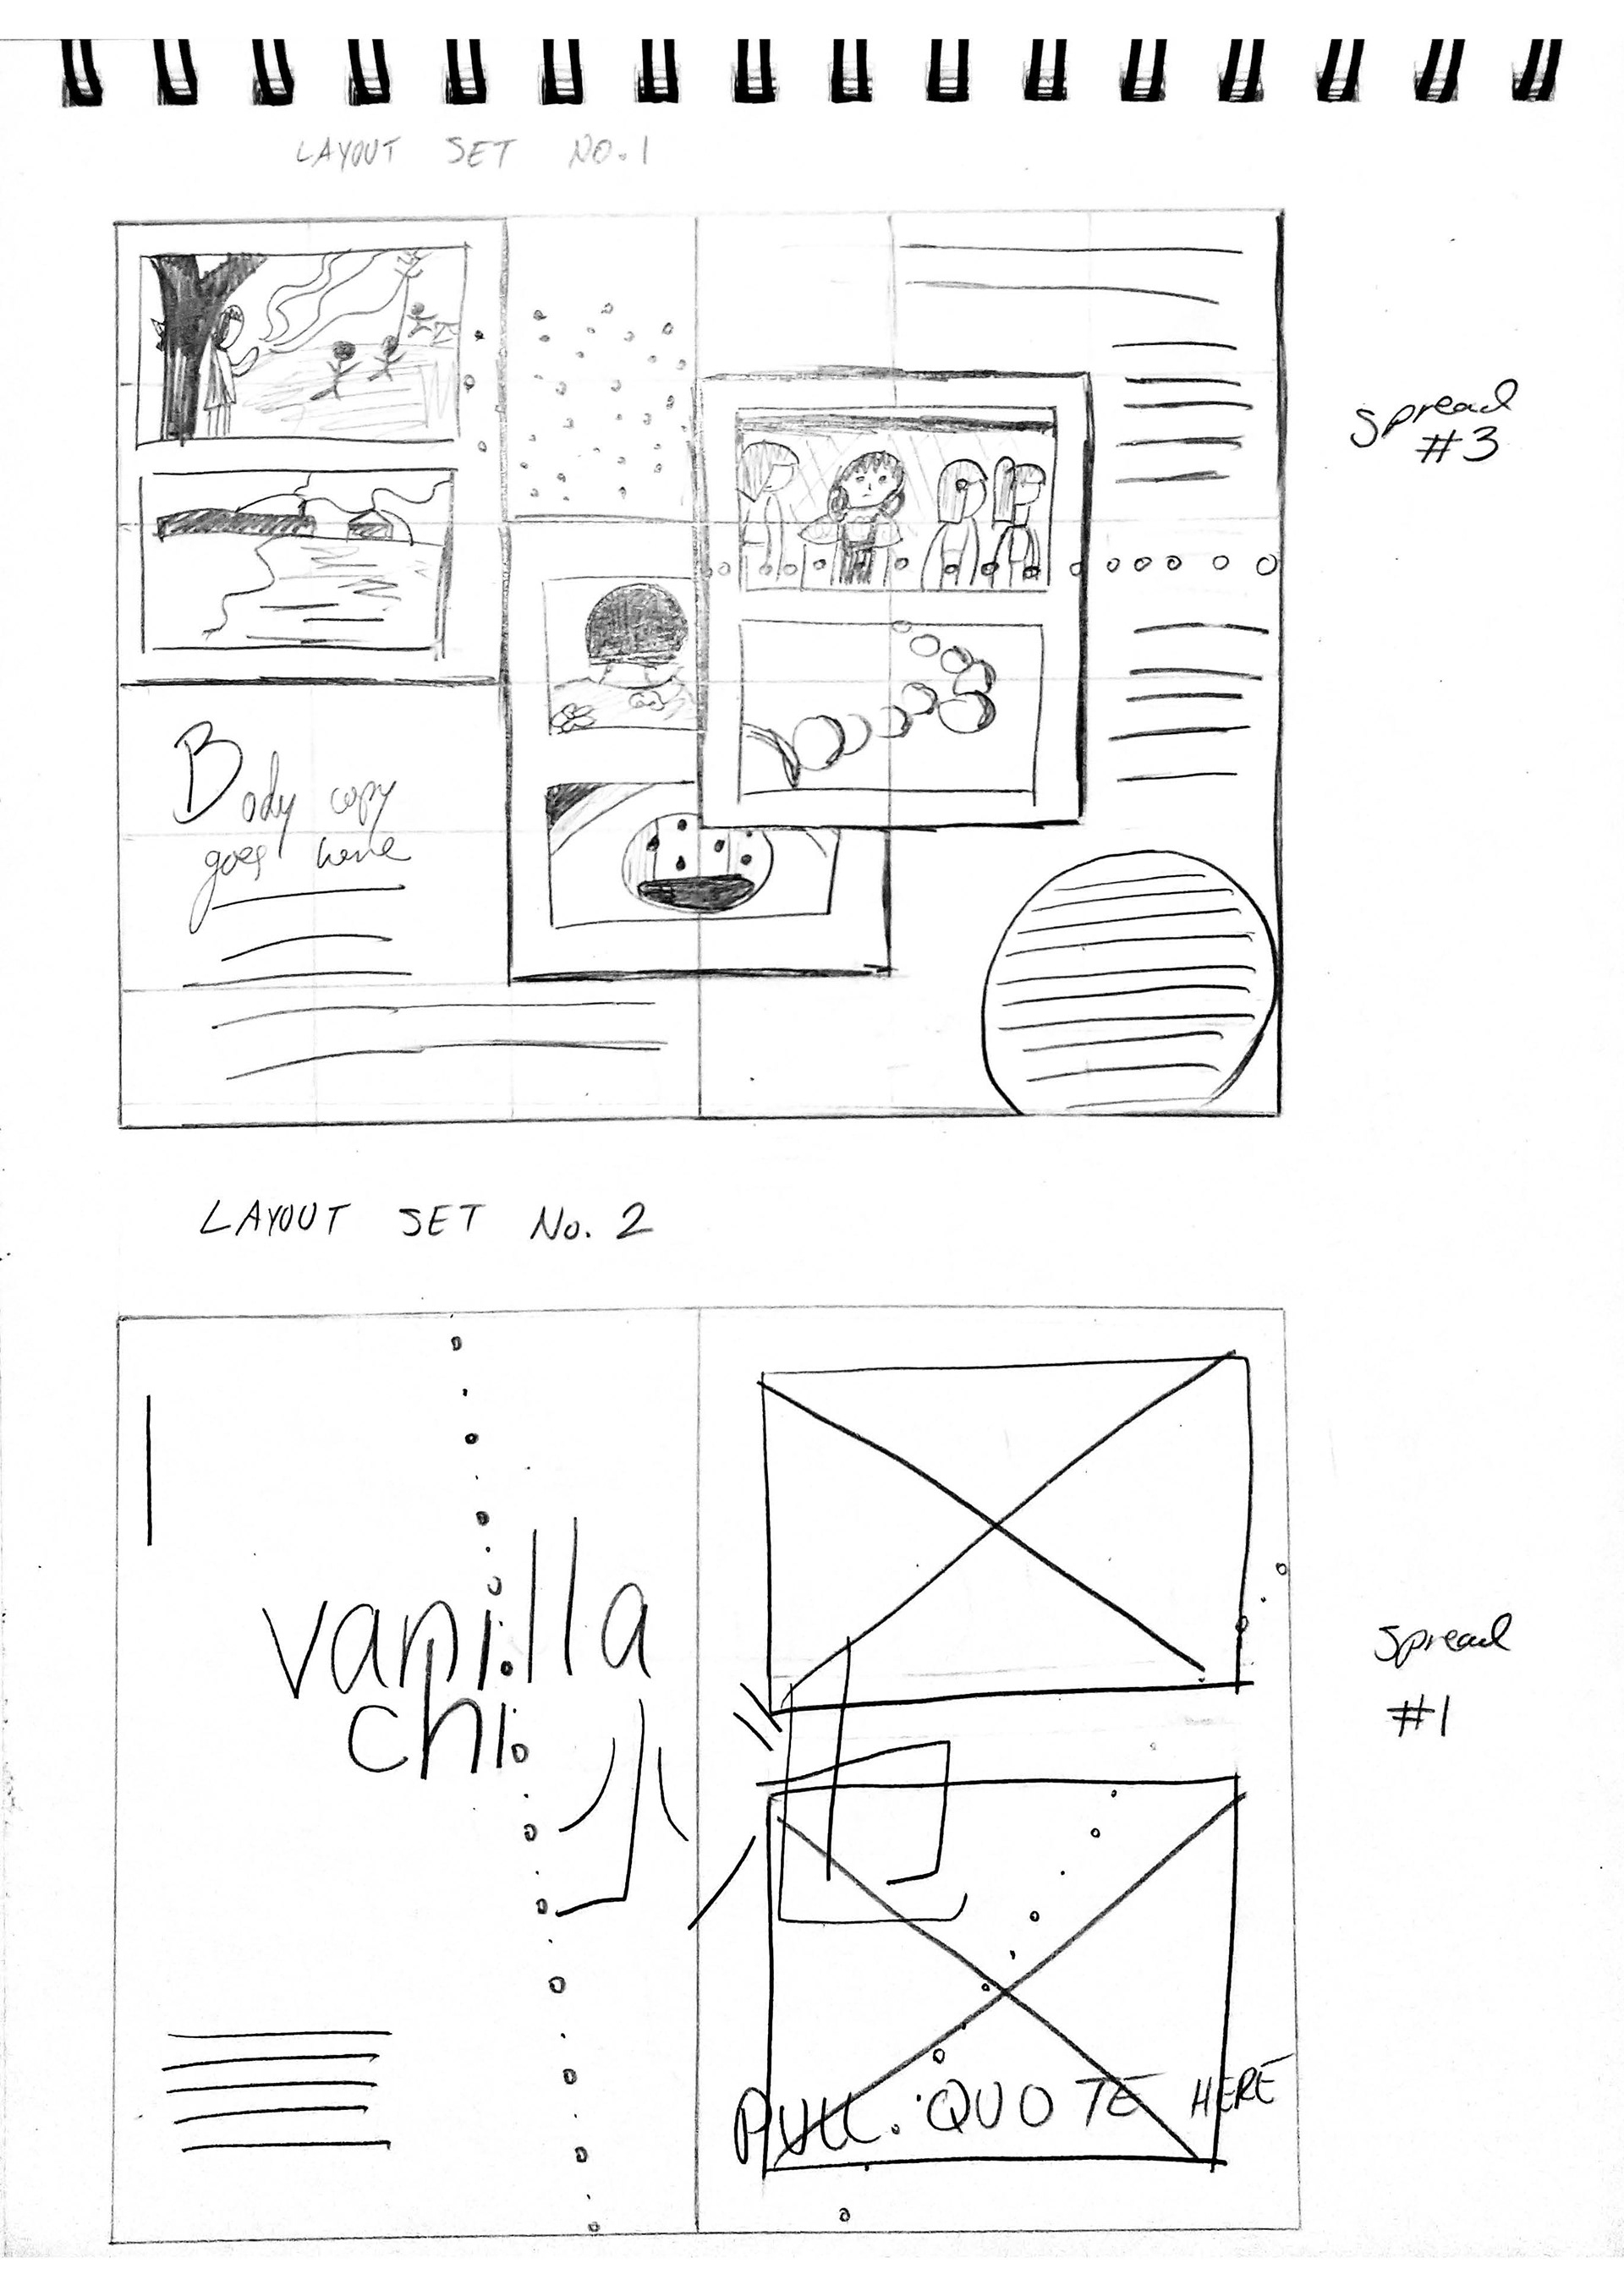 LAYOUT SET NO. 1
Spread
#3
Body copy
goes here
LAYOUT SET No. 2
vanilla
chi
小池
Spread
#1
PULL QUOTE HERE